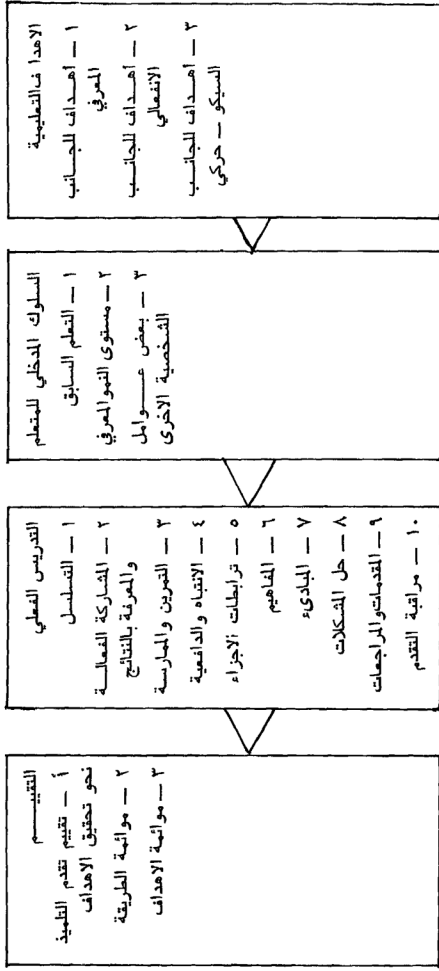 الاهدا ف التعليمية
١ — أهداف للجانب
المعرفي
٢ — أهداف للجانب
الانفعالي
٣ — أهداف للجانب
السيكو — حركي
السلوك المدخلي للمتعلم
١ — التعلم السابق
٢ — مستوى النمو المعرفي
٣ — بعض عـــوامل
الشخصية الاخرى
التدريس الفعلي
١ — التسلسل
٢ — المشاركة الفعالـة
٣ — التمرين والممارسة
والمعرفة بالنتائج
٤ — الانتباه والدافعية
٥ — ترابطات الاجزاء
٦ — المفاهيم
٧ — المبادىء
٨ — حل المشكلات
٩ — المقدمات والمراجعات
١٠ — مراقبة التقدم
التقييـــم
أ — تقييم تقدم التلميذ
نحو تحقيق الاهداف
٢ — موائمة الطريقة
٣ — موائمة الاهداف